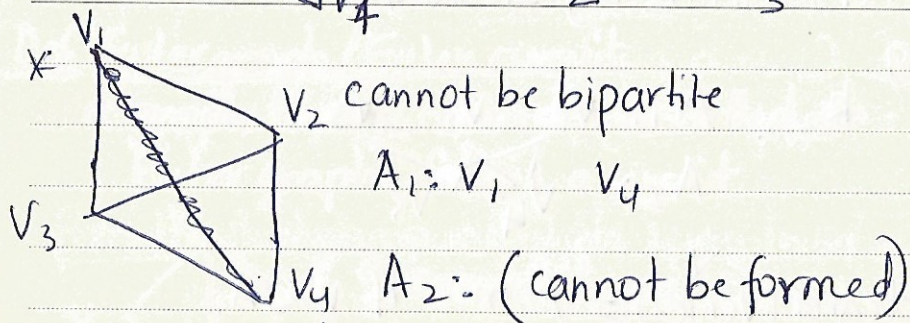 V4 2 3
V1
X:
V2 cannot be bipartite
A1: V1 V4
V3
V4 A2:- (cannot be formed)